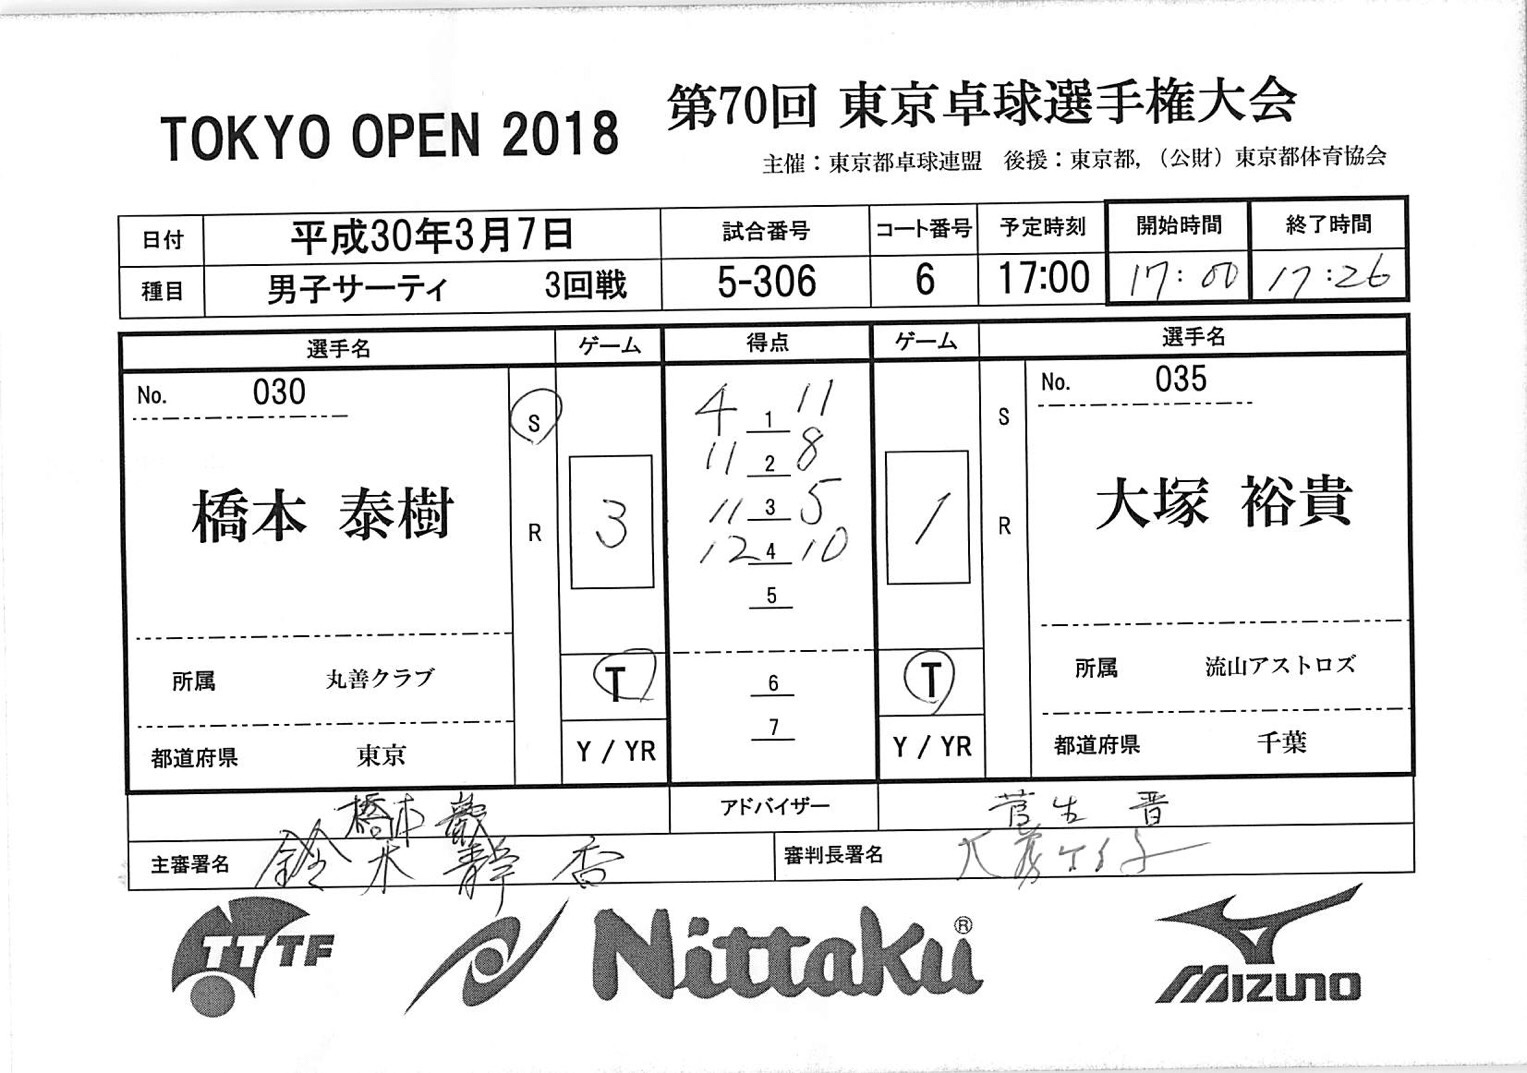 TOKYO OPEN 2018 第70回 東京卓球選手権大会
主催：東京都卓球連盟 後援：東京都，（公財）東京都体育協会
日付 平成30年3月7日 試合番号 コート番号 予定時刻 開始時間 終了時間
種目 男子サーティ 3回戦 5-306 6 17:00 17:00 17:26
選手名 ゲーム 得点 ゲーム 選手名
No. 030 S 4 1 11 S No. 035
11 2 8
橋本 泰樹 R 3 11 3 5 1 R 大塚 裕貴
12 4 10
5
所属 丸善クラブ T 6 T 所属 流山アストロズ
7
都道府県 東京 Y / YR Y / YR 都道府県 千葉
橋本 アドバイザー 菅生 晋
主審署名 鈴木 静香 審判長署名
TTTF Nittaku® MIZUNO